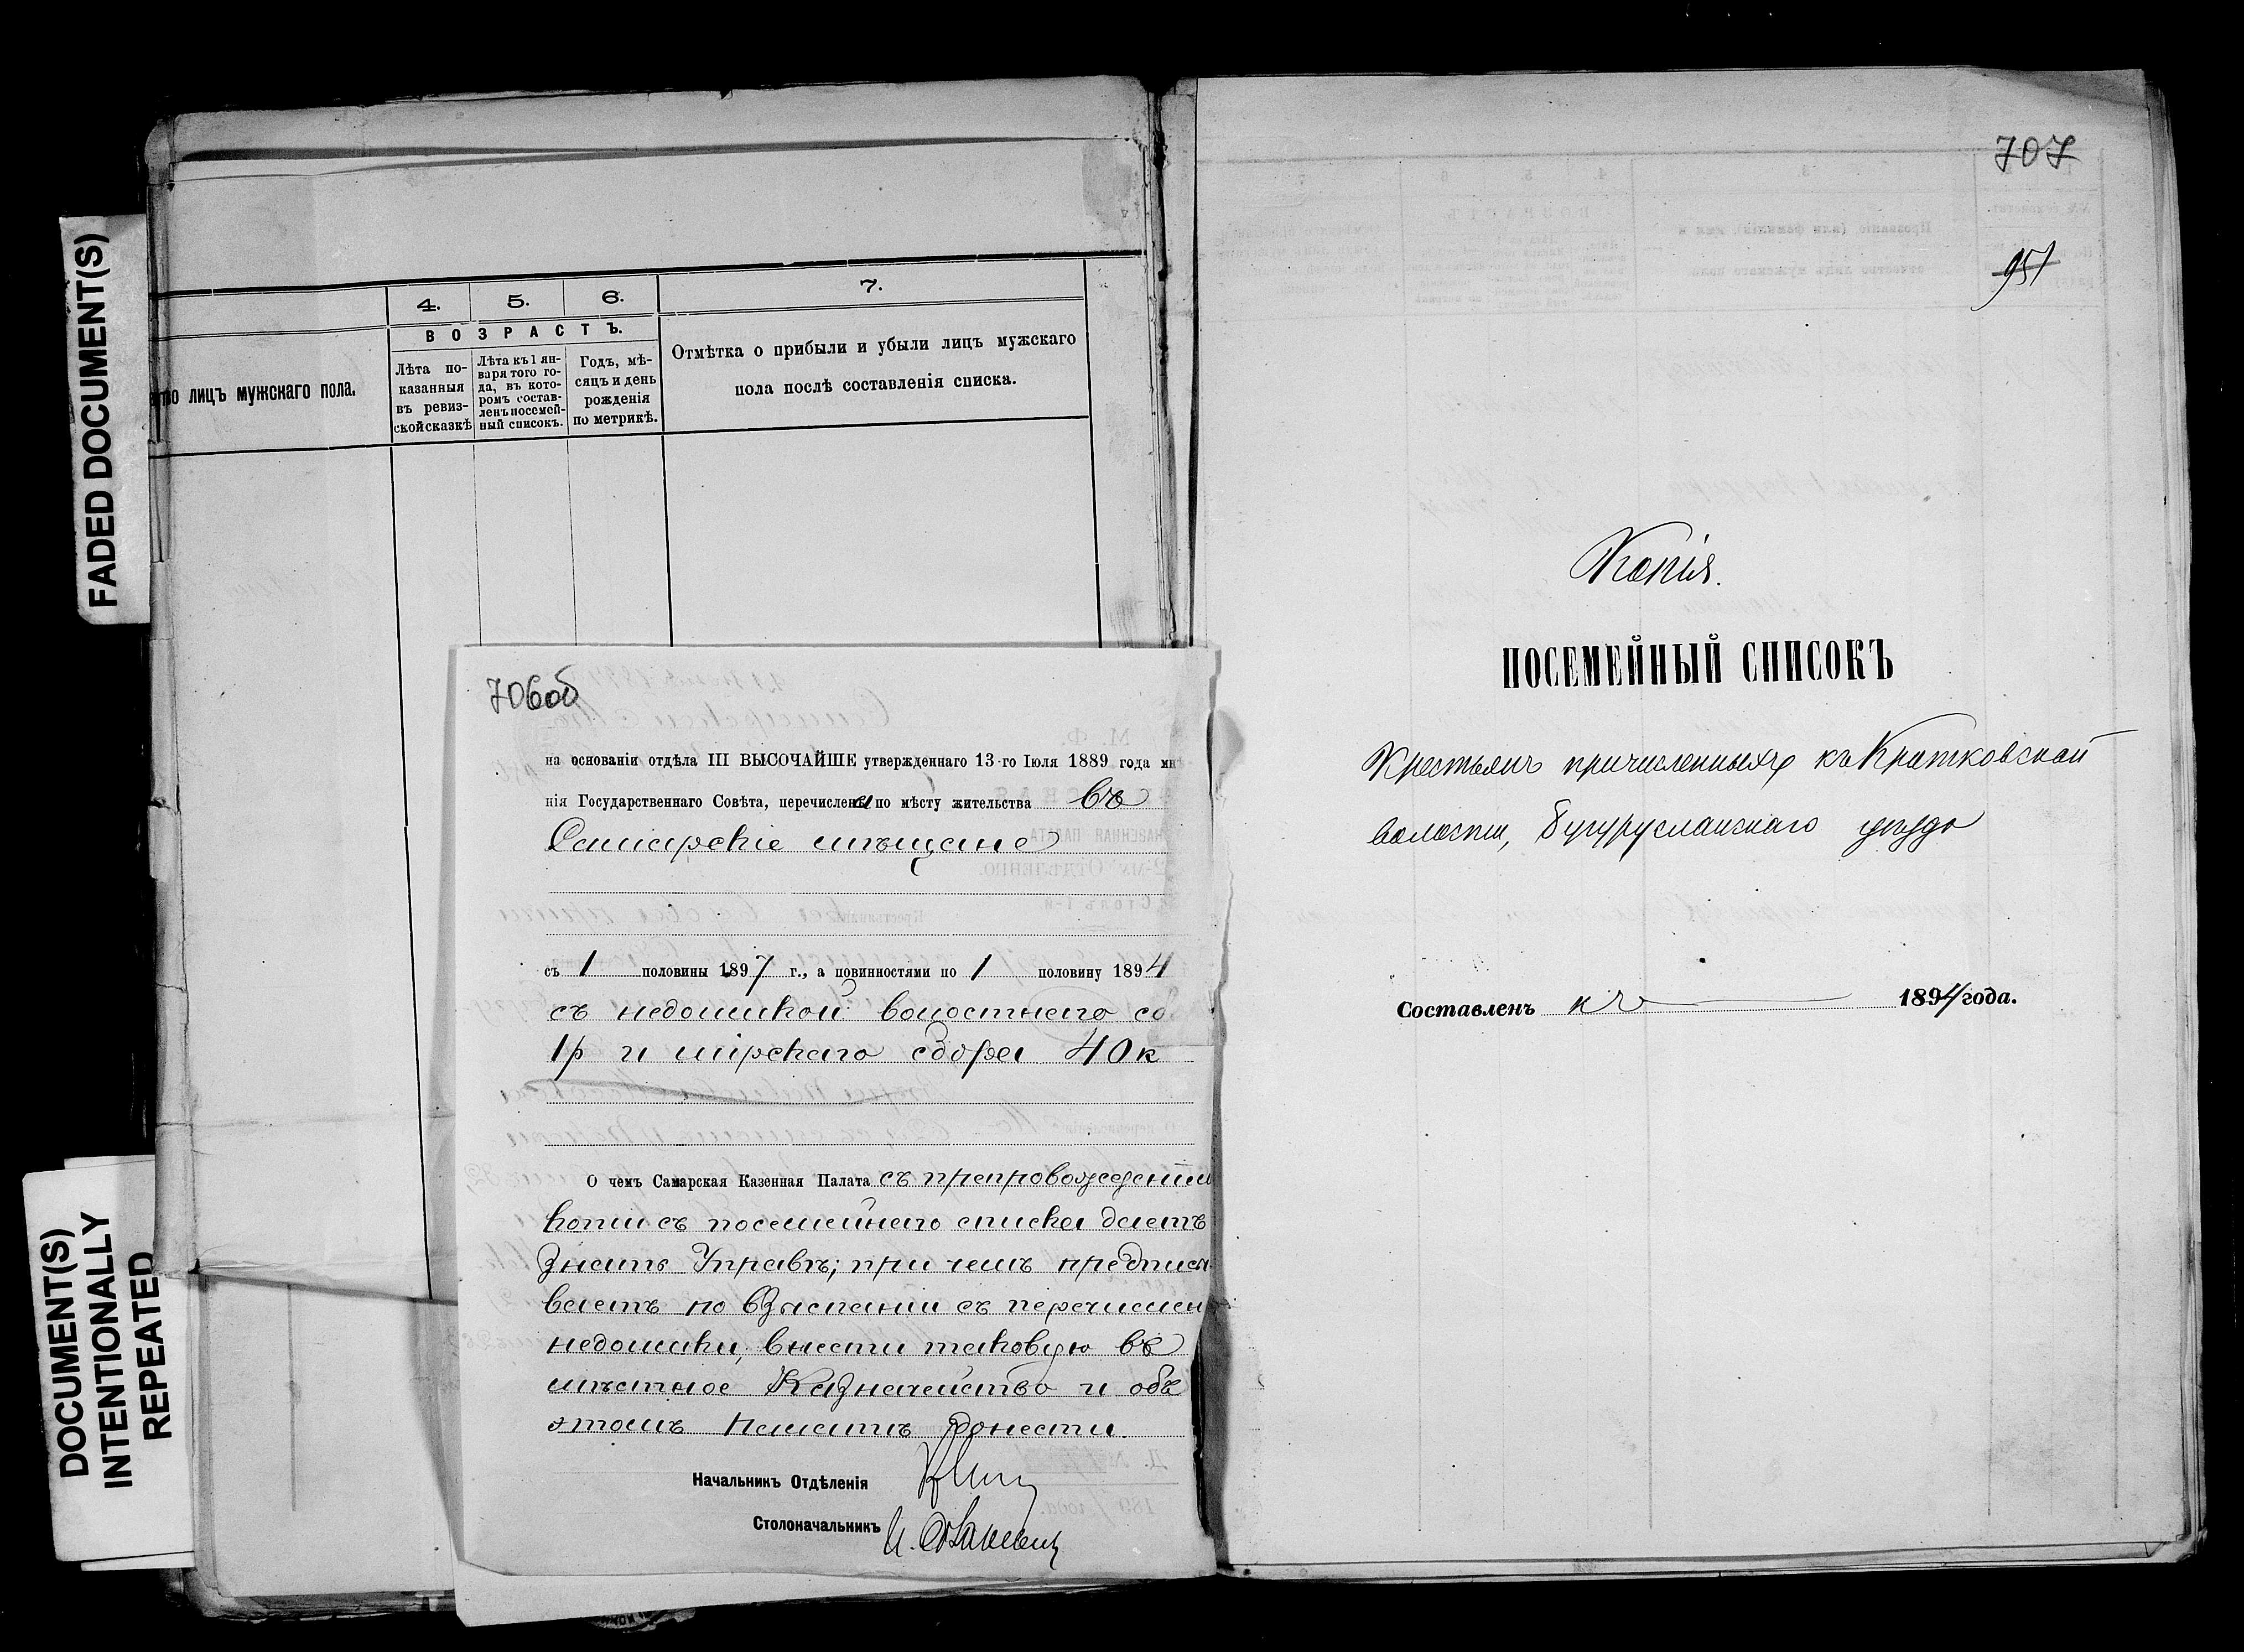 FADED DOCUMENT(S)
DOCUMENT(S)
INTENTIONALLY
REPEATED
4.
5.
6.
7.
ВОЗРАСТЪ.
лицъ мужскаго пола.
Лѣта по-
казанныя
въ ревиз-
ской сказкѣ
Лѣта къ 1 ян-
варя того го-
да, въ кото-
ромъ состав-
ленъ посемей-
ный списокъ.
Годъ, мѣ-
сяцъ и день
рожденія
по метрикѣ.
Отмѣтка о прибыли и убыли лицъ мужскаго
пола послѣ составленія списка.
706об
на основаніи отдѣла III ВЫСОЧАЙШЕ утвержденнаго 13-го Іюля 1889 года мнѣ-
нія Государственнаго Совѣта, перечислены по мѣсту жительства въ
Самарскіе мѣщане
съ 1 половины 1897 г., а повинностями по 1 половину 1894
съ недоимкой волостнаго со
1р и мірскаго сбора 40к
О чемъ Самарская Казенная Палата съ препровожденіем
копіи съ посемейнаго списка даетъ
знать Управѣ; при чемъ предписы
ваетъ по взысканіи съ перечислен
недоимки, внести таковую въ
мѣстное Казначейство и объ
этомъ Палатѣ донести.
Начальникъ Отдѣленія
Столоначальникъ
707
951
Копія.
ПОСЕМЕЙНЫЙ СПИСОКЪ
Крестьянъ причисленныхъ къ Кротковской
волости, Бугурусланскаго уѣзда
Составленъ къ 1894 года.